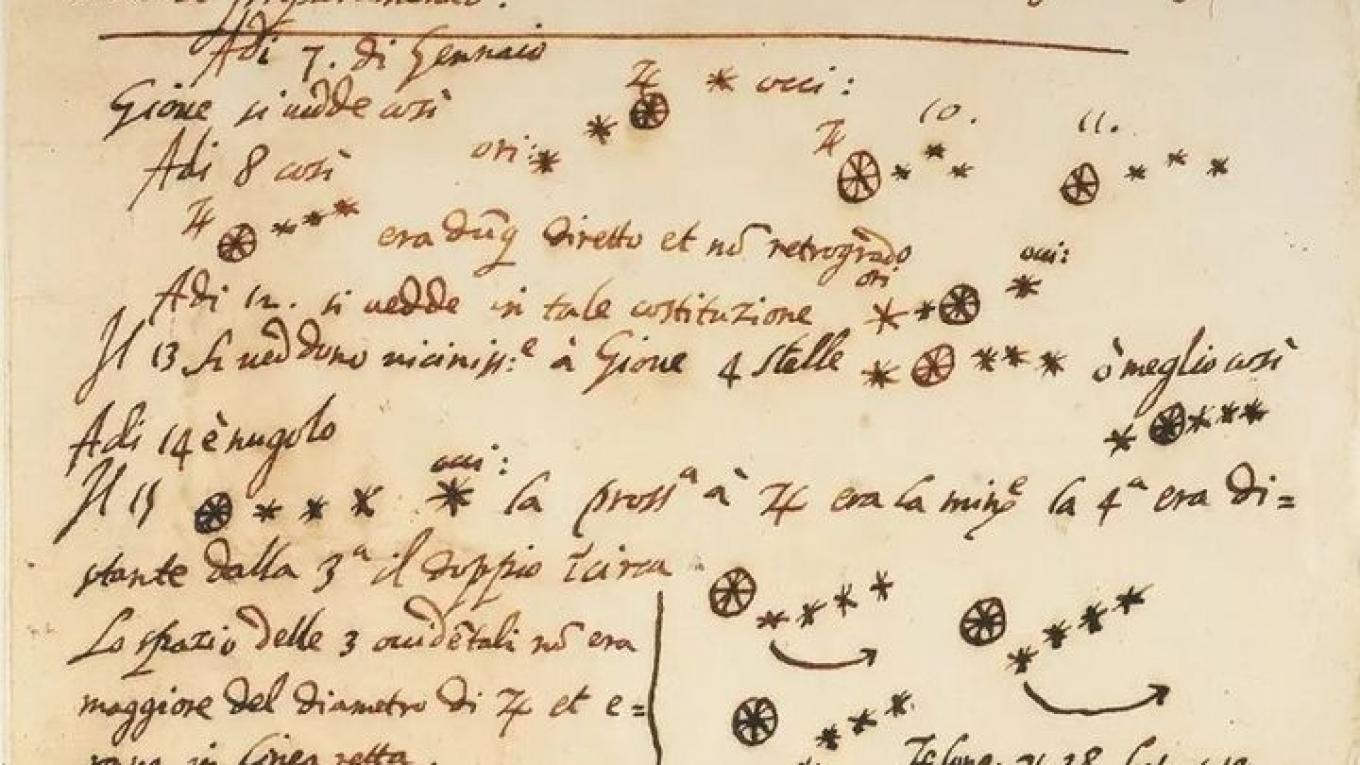 Adi 7. di Gennaio
Gioue si uedde così ♃ * occi:
Adi 8 così ori: ♃ 10. 11.
♃ era dũq diretto et nõ retrogrado
Adi 12. si uedde in tale costituzione ori occi:
Il 13 si ueddono uiciniss:e à Gioue 4 stelle ò meglio così
Adi 14 è nugolo
Il 15 occi: la prossa à ♃ era la mine la 4a era di=
stante dalla 3a il doppio circa
Lo spazio delle 3 ouidẽtali nõ era
maggiore del diametro di ♃ et e=
rano in linea retta.